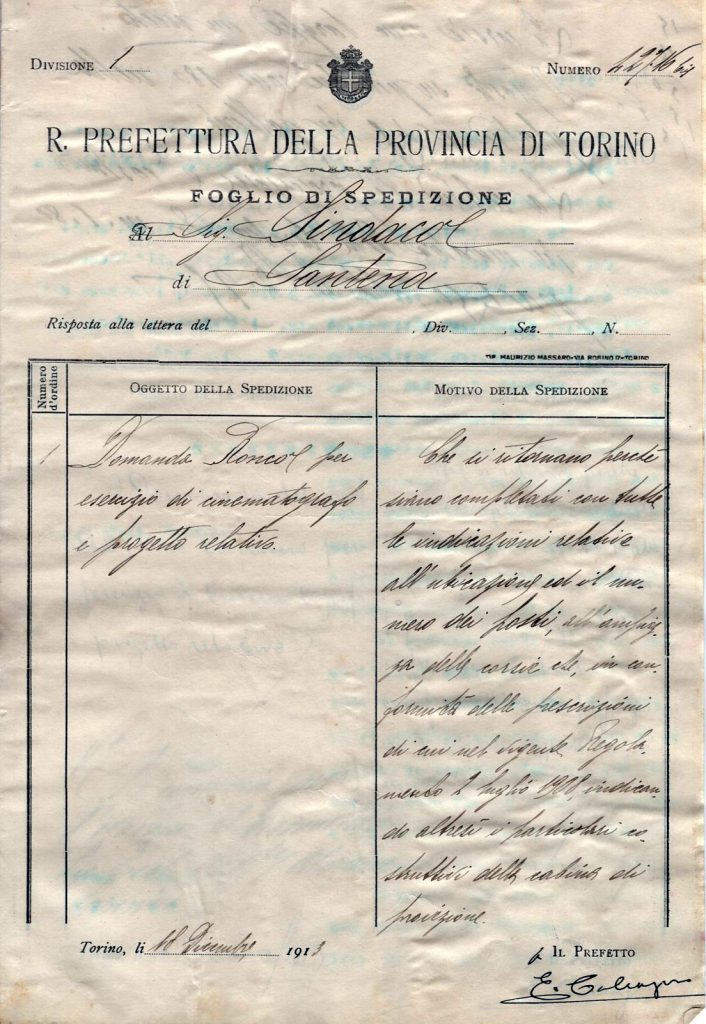 DIVISIONE 1
NUMERO
R. PREFETTURA DELLA PROVINCIA DI TORINO
FOGLIO DI SPEDIZIONE
Al Sig. Sindaco
di Santena
Risposta alla lettera del , Div. , Sez. , N.
TIP. MAURIZIO MASSARO-VIA BOGINO 17-TORINO
Numero d'ordine
OGGETTO DELLA SPEDIZIONE
MOTIVO DELLA SPEDIZIONE
1
Domanda Ronco per
esercizio di cinematografo
e progetto relativo.
Che si ritornano perchè
siano completati con tutte
le indicazioni relative
all'ubicazione ed il nu-
mero dei posti, all'ampiez-
za delle corsie che, in con-
formità delle prescrizioni
di cui nel vigente Regola-
mento 2 luglio 1908, indican-
do altresì i particolari co-
struttivi della cabina di
proiezione.
Torino, li 18 Dicembre 1913
p IL PREFETTO